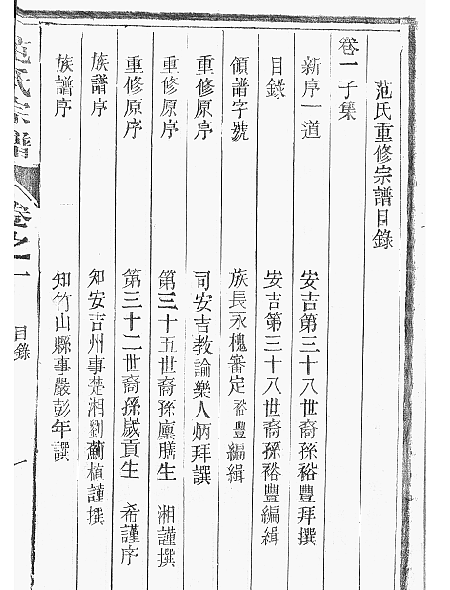 范氏重修宗譜目錄
卷一子集
新序一道 安吉第三十八世裔孫裕豐拜撰
目錄 安吉第三十八世裔孫裕豐編緝
領譜字號 族長永槐審定 裕豐編緝
重修原序 司安吉教諭樂人炳拜撰
重修原序 第三十五世裔孫廩膳生 湘謹撰
重修原序 第三十二世裔孫歲貢生 希謹序
族譜序 知安吉州事楚湘劉薊植謹撰
族譜序 知竹山縣事嚴彭年譔
范氏宗譜 卷之一 目錄 一